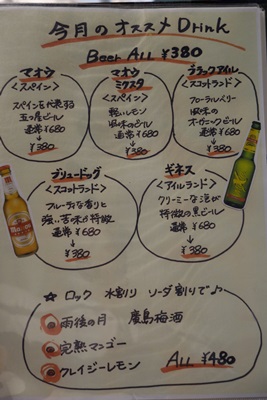 今月のオススメDrink
Beer ALL ¥380
マオウ
<スペイン>
スペインを代表する
五つ星ビール
通常¥680
→¥380
マオウ
ミクスタ
<スペイン>
軽いレモン
風味のビール
通常¥680
→¥380
ブラックアイル
<スコットランド>
フローラルベリー
風味の
オーガニックビール
通常¥680
→¥380
ブリュードッグ
<スコットランド>
フルーティな香りと
強い苦味が特徴
通常¥680
→¥380
ギネス
<アイルランド>
クリーミーな泡が
特徴の黒ビール
通常¥680
→¥380
☆ ロック 水割り ソーダ割りで♪
雨後の月 広島梅酒
完熟マンゴー
クレイジーレモン
ALL ¥480